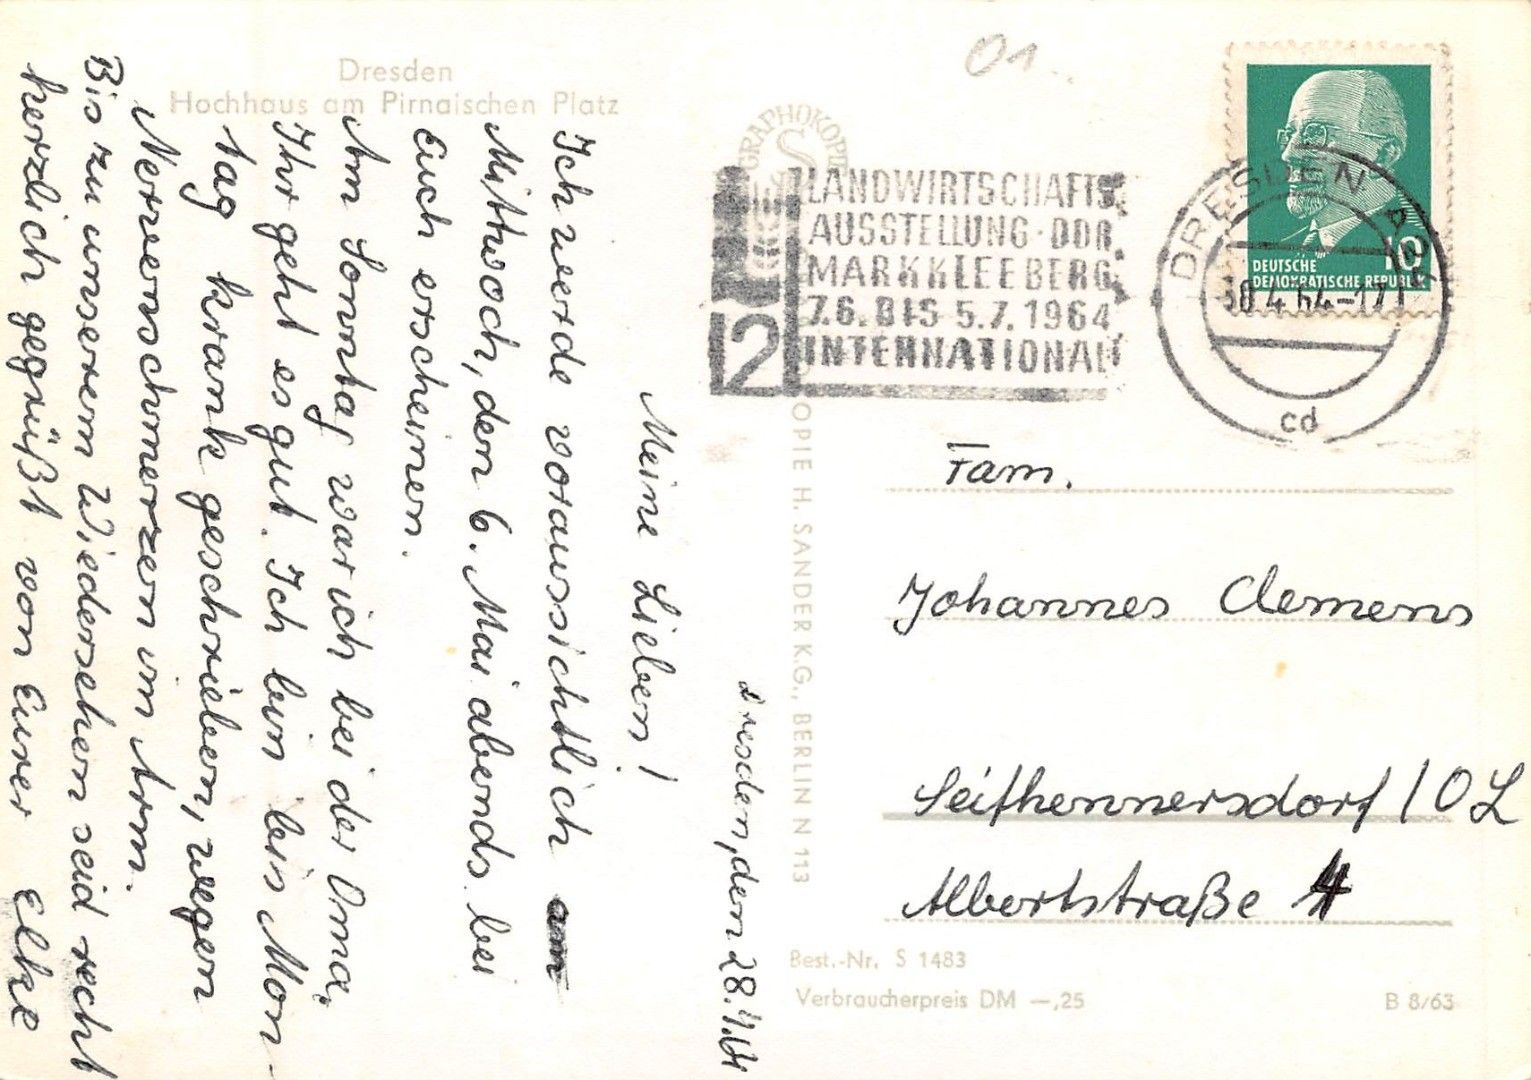 Dresden
Hochhaus am Pirnaischen Platz
Dresden, den 28.4.64
Meine Lieben!
Ich werde voraussichtlich am
Mittwoch, den 6. Mai abends bei
Euch erscheinen.
Am Sonntag war ich bei der Oma,
Ihr geht es gut. Ich bin bis Mon-
tag krank geschrieben, wegen
Nervenschmerzen im Arm.
Bis zu unserem Wiedersehen seid recht
herzlich gegrüßt von Eurer Elke
01
GRAPHOKOPIE
S
LANDWIRTSCHAFTS
AUSSTELLUNG · DDR
MARKKLEEBERG
7.6. BIS 5.7. 1964
INTERNATIONAL
12
DRESDEN
30.4.64-17
cd
10
DEUTSCHE
DEMOKRATISCHE REPUBLIK
OPIE H. SANDER K.G., BERLIN N 113
Fam.
Johannes Clemens
Seifhennersdorf / OL
Albertstraße 4
Best.-Nr. S 1483
Verbraucherpreis DM —,25
B 8/63